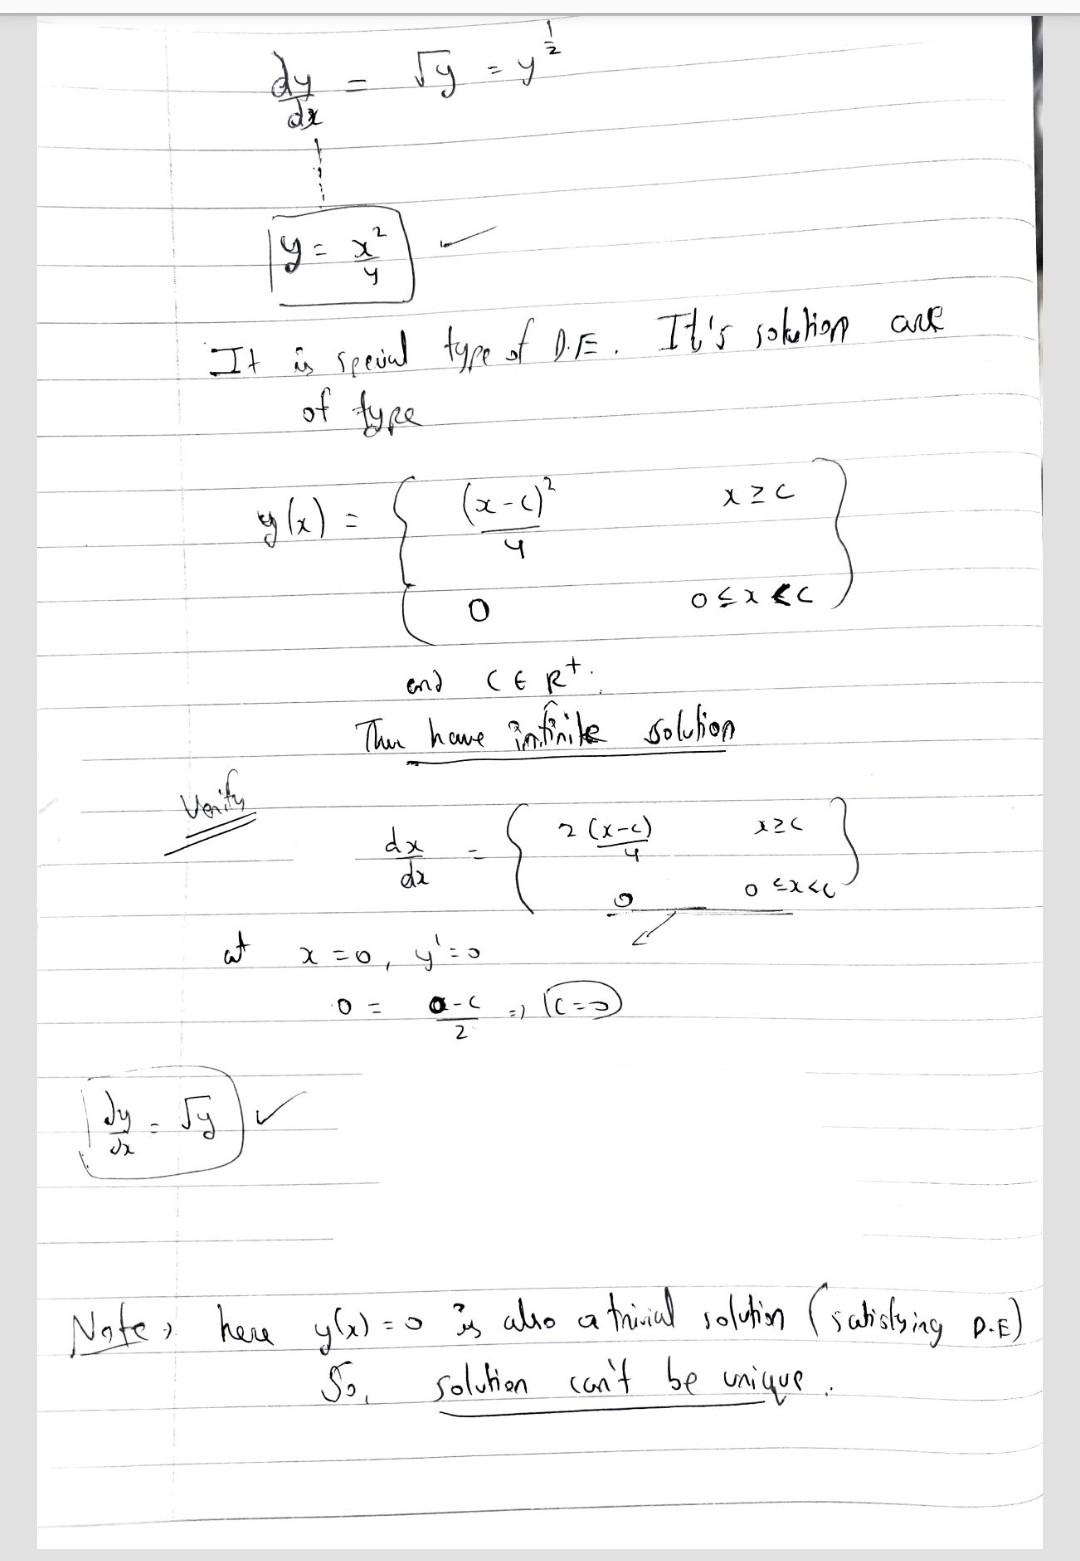 dy/dx = √y = y^(1/2)
y = x²/4 ✓
It is special type of D.E. It's solution are
of type
y(x) = { (x-c)²/4    x ≥ c
0    0 ≤ x < c }
and C ∈ R⁺.
Thus have infinite solution
Verify
dx/dx = { 2(x-c)/4    x ≥ c
0    0 ≤ x < c }
at x = 0, y' = 0
0 = 0-c/2 => C = 0
dy/dx = √y ✓
Note, here y(x) = 0 is also a trivial solution (satisfying D.E)
So, solution can't be unique.